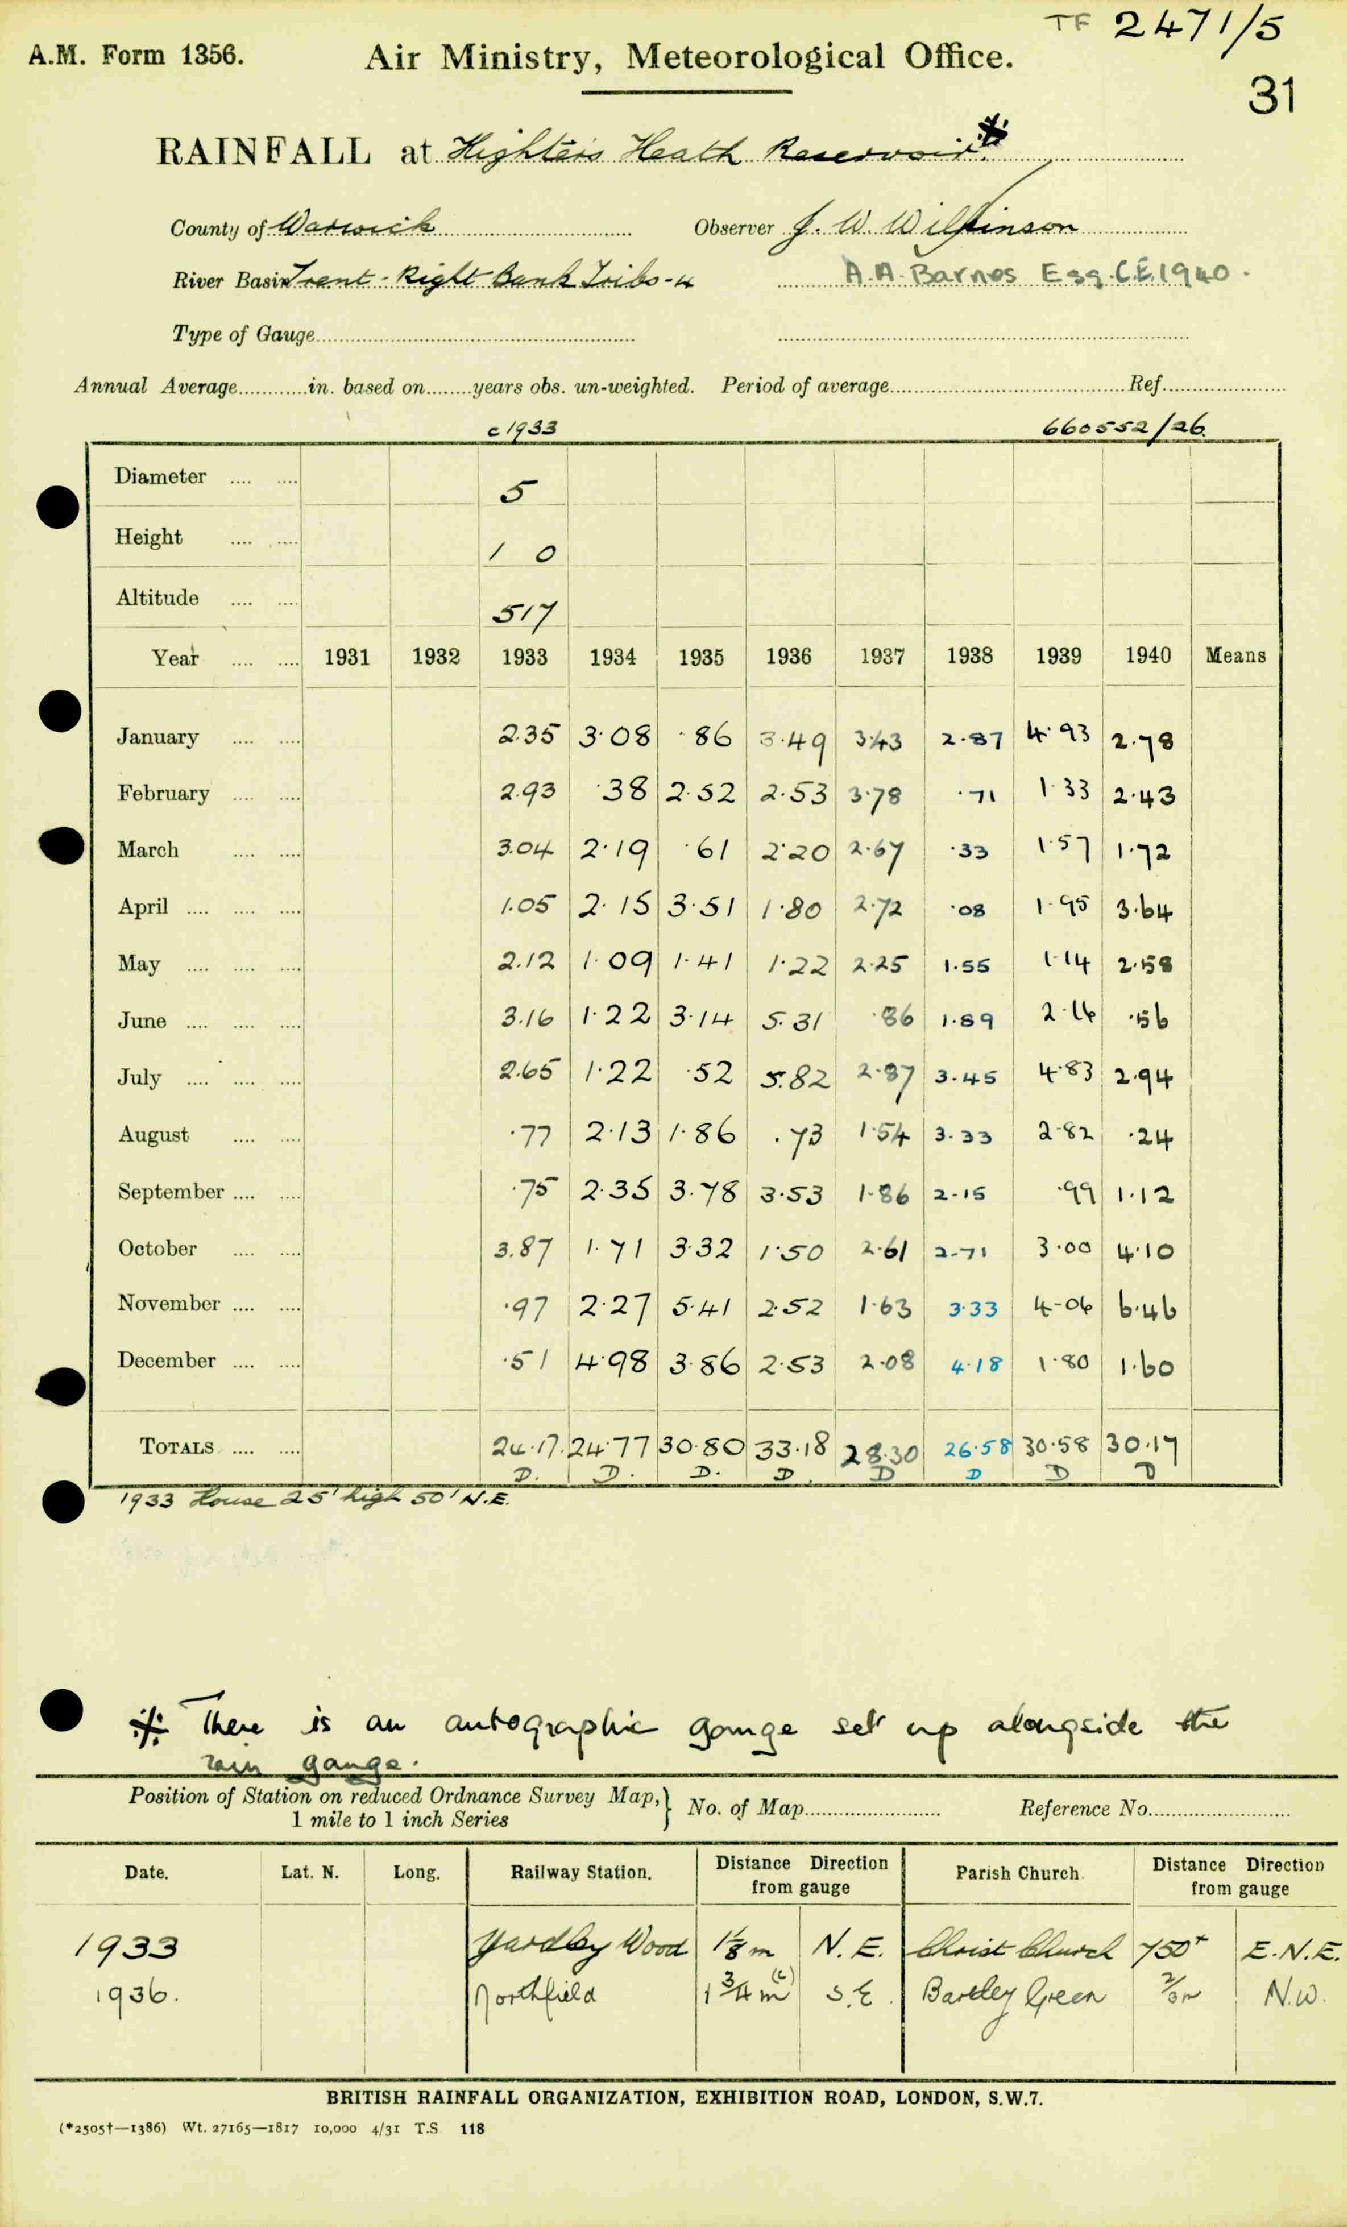 TF 2471/5
A.M. Form 1356. Air Ministry, Meteorological Office.
31
RAINFALL at Highters Heath Reservoir.*
County of Warwick Observer J. W. Wilkinson
River Basin Trent - Right Bank Tribs - 4 A. A. Barnes Esq. C.E. 1940.
Type of Gauge
Annual Average in. based on years obs. un-weighted. Period of average Ref.
c 1933 660552/26.
Diameter 5
Height 1 0
Altitude 517
Year 1931 1932 1933 1934 1935 1936 1937 1938 1939 1940 Means
January 2.35 3.08 .86 3.49 3.43 2.87 4.93 2.78
February 2.93 .38 2.52 2.53 3.78 .71 1.33 2.43
March 3.04 2.19 .61 2.20 2.67 .33 1.57 1.72
April 1.05 2.15 3.51 1.80 2.72 .08 1.95 3.64
May 2.12 1.09 1.41 1.22 2.25 1.55 1.14 2.58
June 3.16 1.22 3.14 5.31 .86 1.89 2.16 .56
July 2.65 1.22 .52 5.82 2.87 3.45 4.83 2.94
August .77 2.13 1.86 .73 1.54 3.33 2.82 .24
September .75 2.35 3.78 3.53 1.86 2.15 .99 1.12
October 3.87 1.71 3.32 1.50 2.61 2.71 3.00 4.10
November .97 2.27 5.41 2.52 1.63 3.33 4.06 6.46
December .51 4.98 3.86 2.53 2.08 4.18 1.80 1.60
TOTALS 24.17 24.77 30.80 33.18 28.30 26.58 30.58 30.17
D. D. D. D. D D D D
1933 House 25' high 50' N.E.
* There is an autographic gauge set up alongside the
rain gauge.
Position of Station on reduced Ordnance Survey Map,} No. of Map Reference No.
1 mile to 1 inch Series
Date. Lat. N. Long. Railway Station. Distance Direction from gauge Parish Church. Distance Direction from gauge
1933 Yardley Wood 1⅛ m N.E. Christ Church 750+ E.N.E.
1936. Northfield 1¾ m (c) S.E. Bartley Green N.W.
BRITISH RAINFALL ORGANIZATION, EXHIBITION ROAD, LONDON, S.W.7.
(*2505†—1386) Wt. 27165—1817 10,000 4/31 T.S. 118